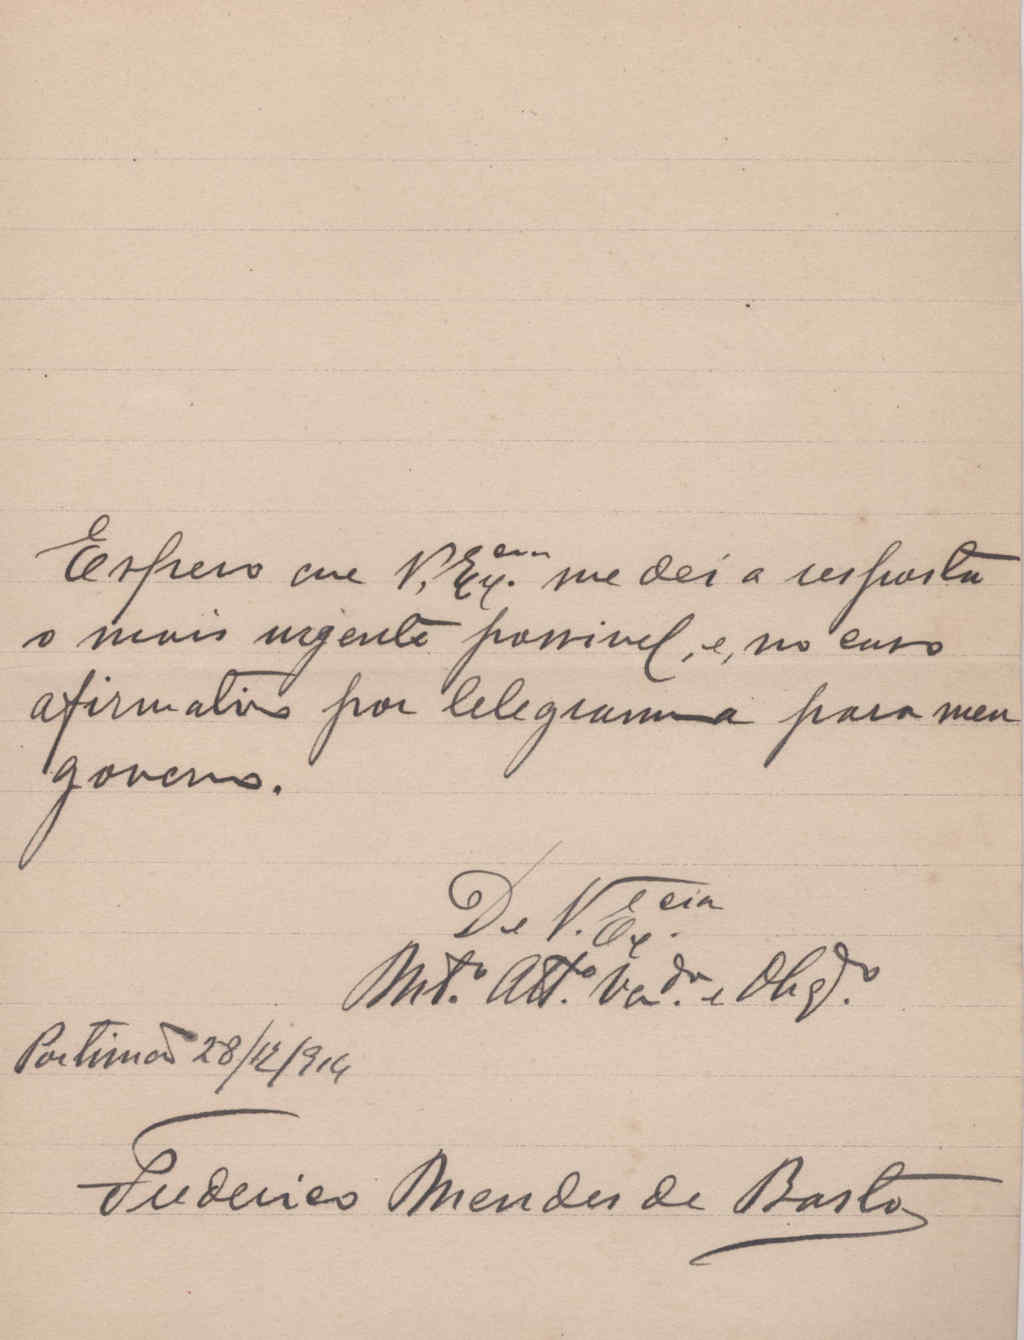 Espero que V. Ex.cia me dei a resposta
o mais urgente possivel, e, no caso
afirmativo por telegramma para meu
governo.
De V. Ex.cia
Mt.o Att.o Ven.dor e Obgd.o
Portimão 28/12/914
Frederico Mendes de Basto